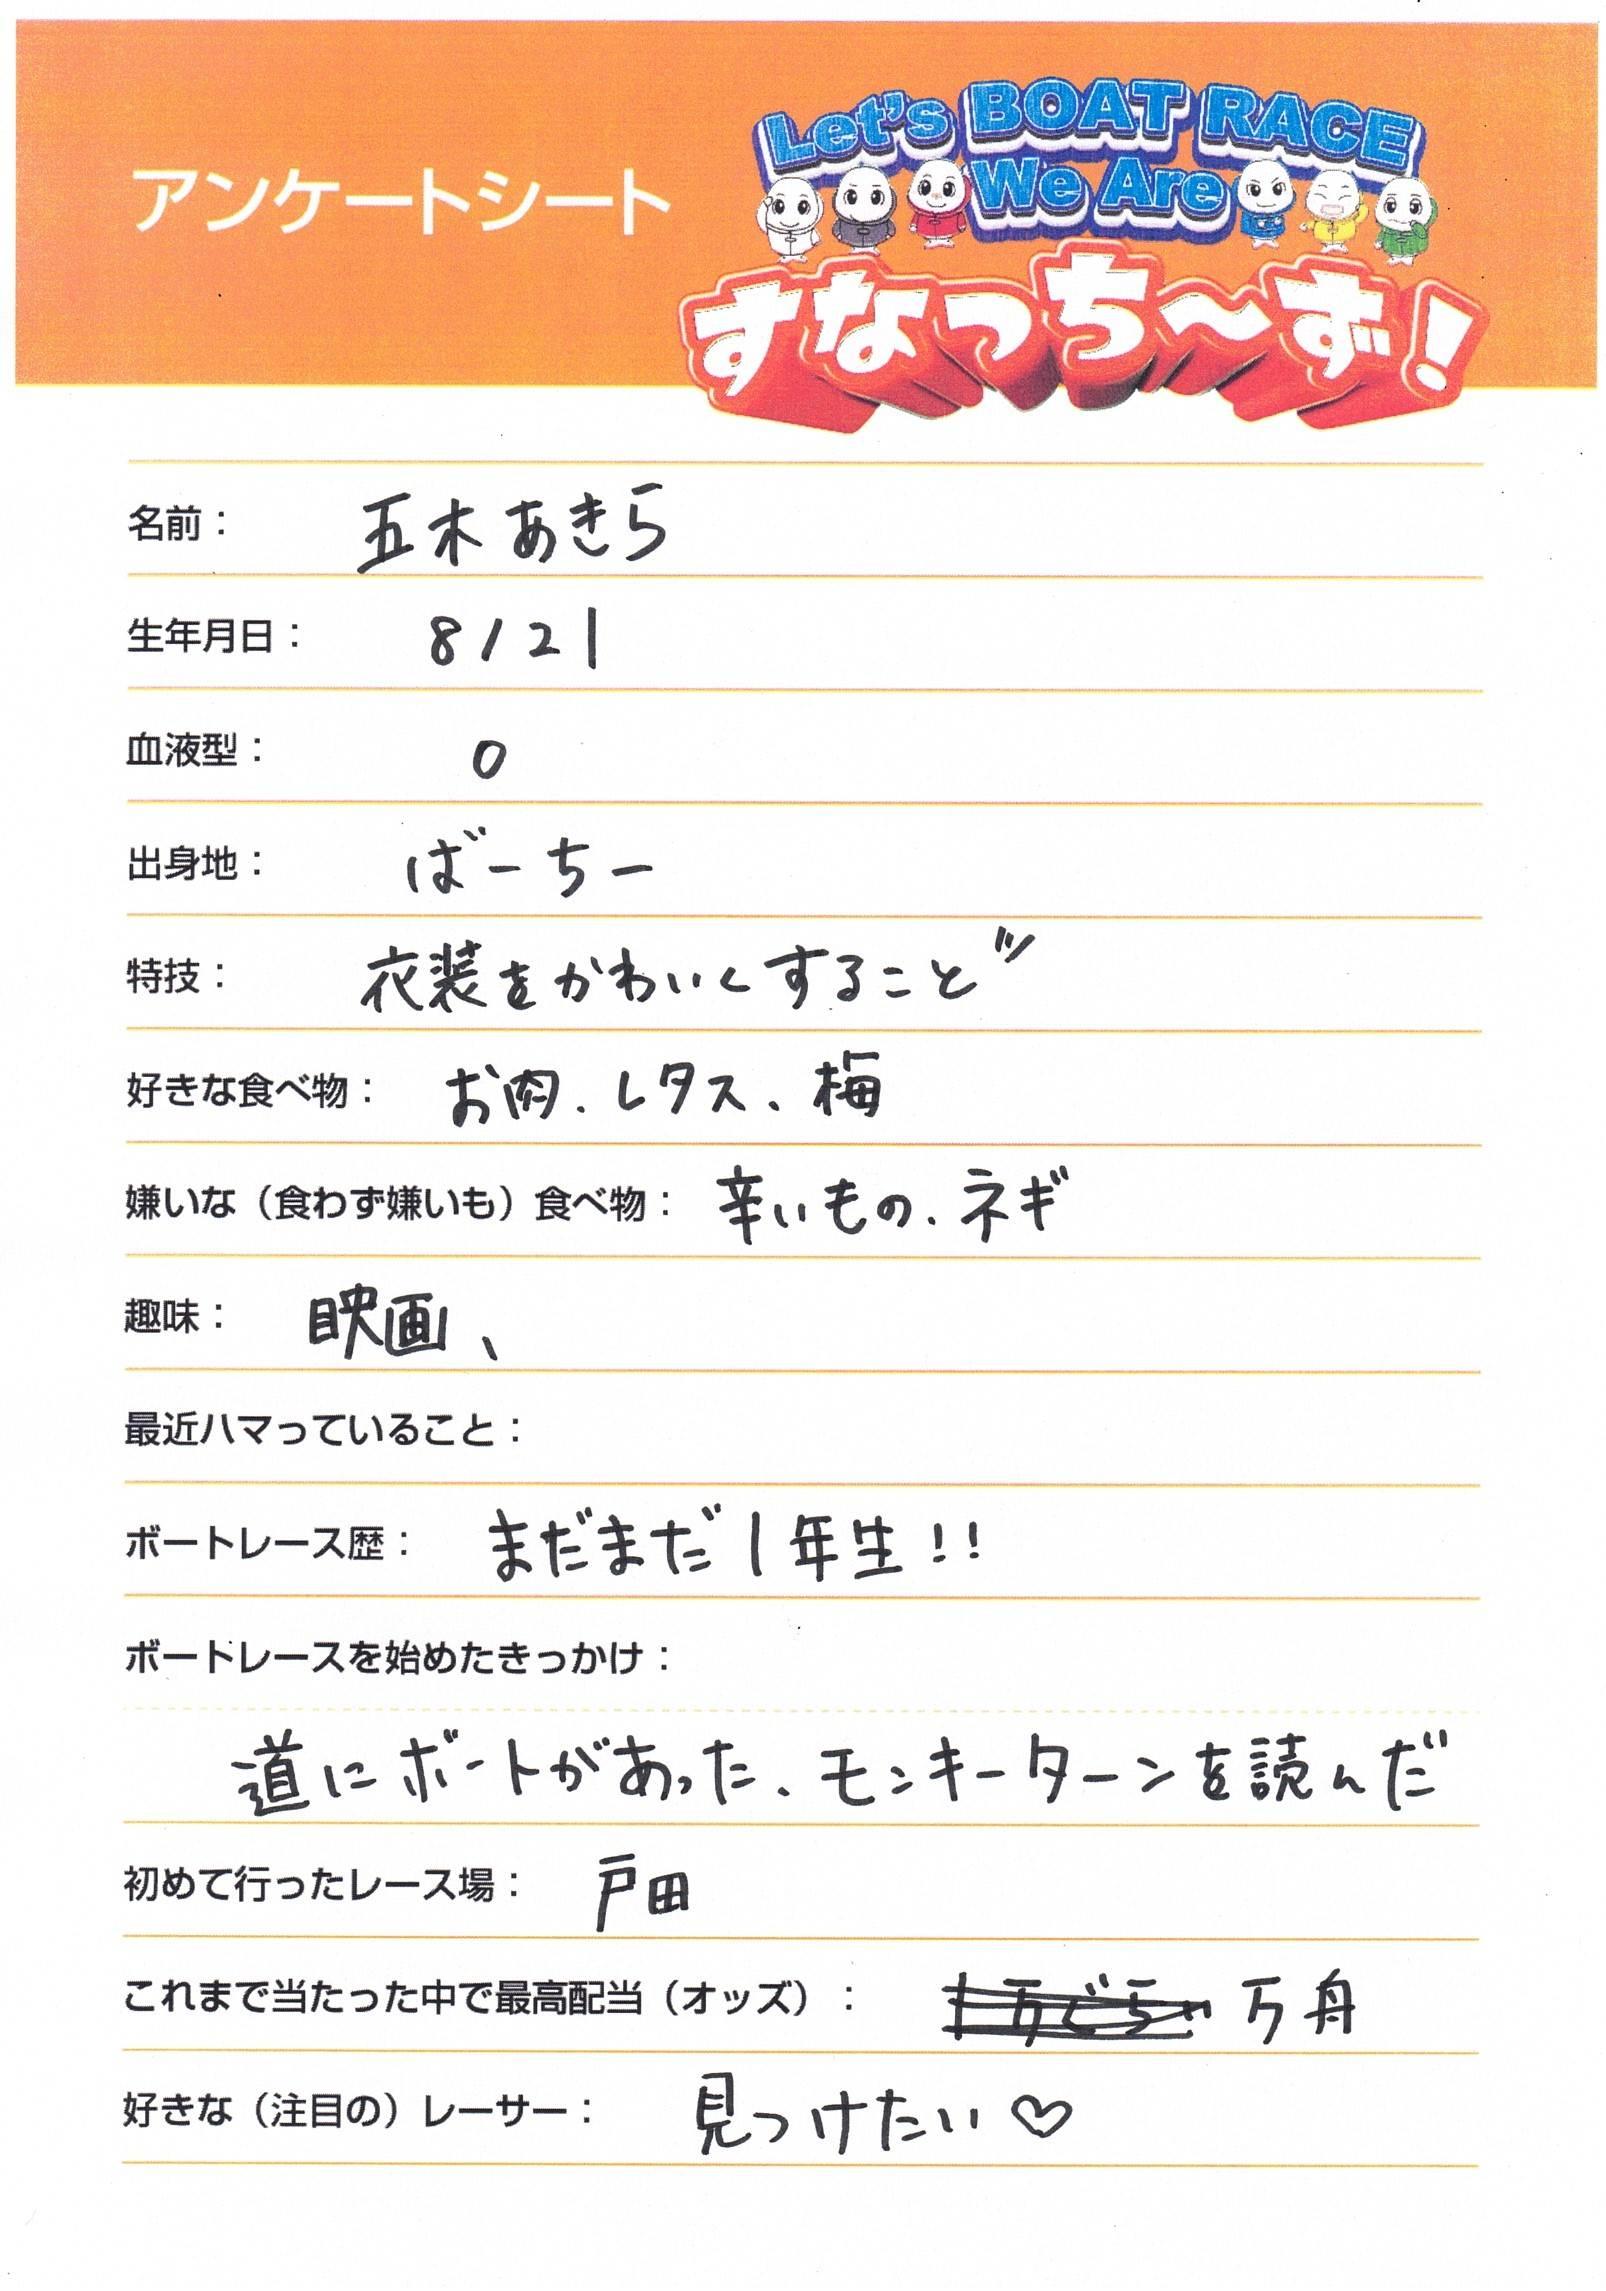 アンケートシート
Let's BOAT RACE
We Are
すなっち〜ず！
名前： 五木あきら
生年月日： 8/21
血液型： O
出身地： ばーちー
特技： 衣装をかわいくすること
好きな食べ物： お肉、レタス、梅
嫌いな（食わず嫌いも）食べ物： 辛いもの、ネギ
趣味： 映画、
最近ハマっていること：
ボートレース歴： まだまだ1年生!!
ボートレースを始めたきっかけ：
道にボートがあった、モンキーターンを読んだ
初めて行ったレース場： 戸田
これまで当たった中で最高配当（オッズ）： 万舟
好きな（注目の）レーサー： 見つけたい♡